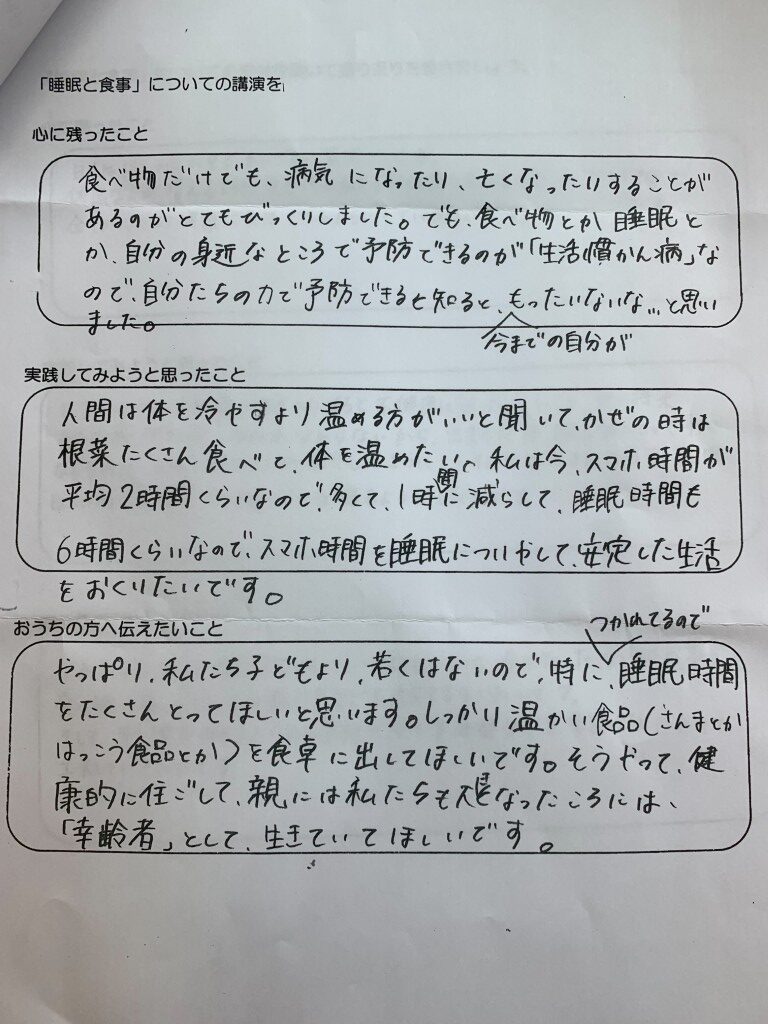 「睡眠と食事」についての講演を
心に残ったこと
食べ物だけでも、病気になったり、亡くなったりすることが
あるのがとてもびっくりしました。でも、食べ物とか睡眠と
か、自分の身近なところで予防できるのが「生活慣かん病」な
ので、自分たちの力で予防できると知ると、もったいないな…と思い
ました。
今までの自分が
実践してみようと思ったこと
人間は体を冷やすより温める方がいいと聞いて、かぜの時は
根菜たくさん食べて、体を温めたい。私は今、スマホ時間が
平均2時間くらいなので、多くて、1時間に減らして、睡眠時間も
6時間くらいなので、スマホ時間を睡眠についやして、安定した生活
をおくりたいです。
おうちの方へ伝えたいこと
つかれてるので
やっぱり、私たち子どもより、若くはないので、特に、睡眠時間
をたくさんとってほしいと思います。しっかり温かい食品(さんまとか
はっこう食品とか)を食卓に出してほしいです。そうやって、健
康的に住ごして、親には私たちも大きくなったころには、
「幸齢者」として、生きていてほしいです。